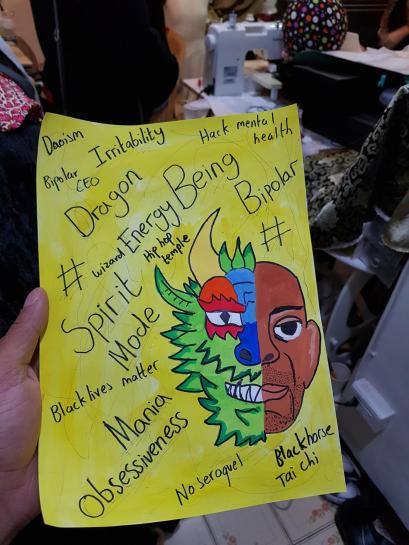 Daoism
Irritability
Hack mental
health
Bipolar
CEO
Dragon
Energy Being
Bipolar
#
wizard
Hip hop
temple
#
Spirit
Mode
Black lives matter
Mania
Obsessiveness
No seroquel
Blackhorse
Tai chi